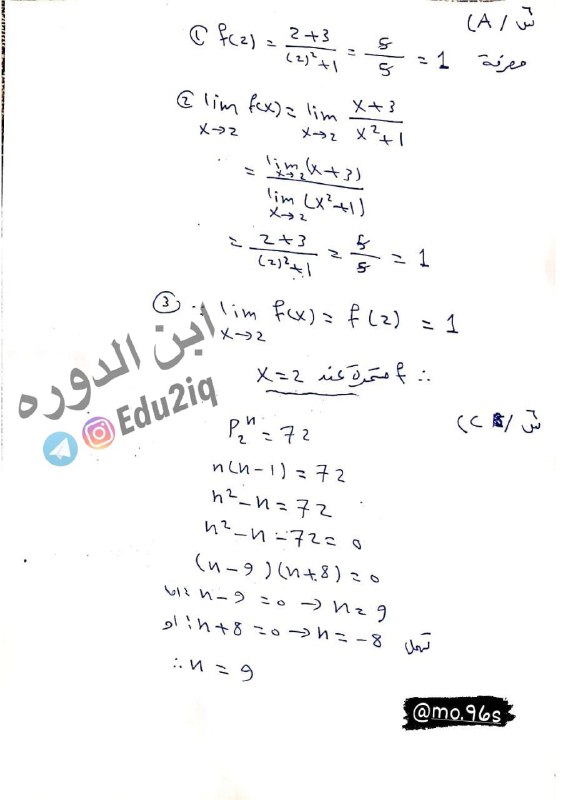 س٦/ A)
① f(2) = (2+3)/((2)²+1) = 5/5 = 1 معرفة
② lim x→2 f(x) = lim x→2 (x+3)/(x²+1)
= lim x→2 (x+3) / lim x→2 (x²+1)
= (2+3)/((2)²+1) = 5/5 = 1
③ ∵ lim x→2 f(x) = f(2) = 1
∴ f مستمرة عند x=2
ابن الدوره
@Edu2iq
C)
P₂ⁿ = 72
n(n-1) = 72
n² - n = 72
n² - n - 72 = 0
(n-9)(n+8) = 0
اما n-9 = 0 → n = 9
او n+8 = 0 → n = -8 تهمل
∴ n = 9
@mo.96s